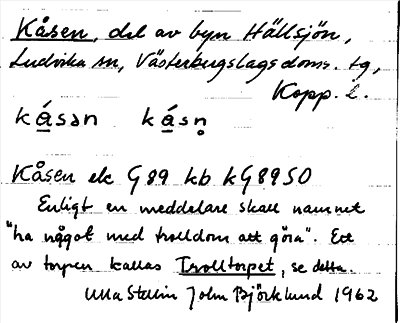 Kåsen, del av byn Hällsjön,
Ludvika sn, Västerbergslags doms. tg,
Kopp. l.
kásən kásn̥
Kåsen ek G89 kb kG89SO
Enligt en meddelare skall namnet
"ha något med trolldom att göra". Ett
av torpen kallas Trolltorpet, se detta.
Ulla Stellin John Björklund 1962